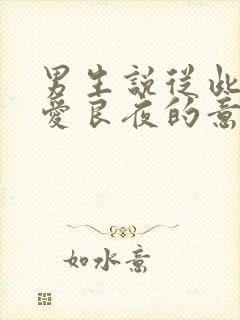 男生說從此
愛良夜的意
如水意